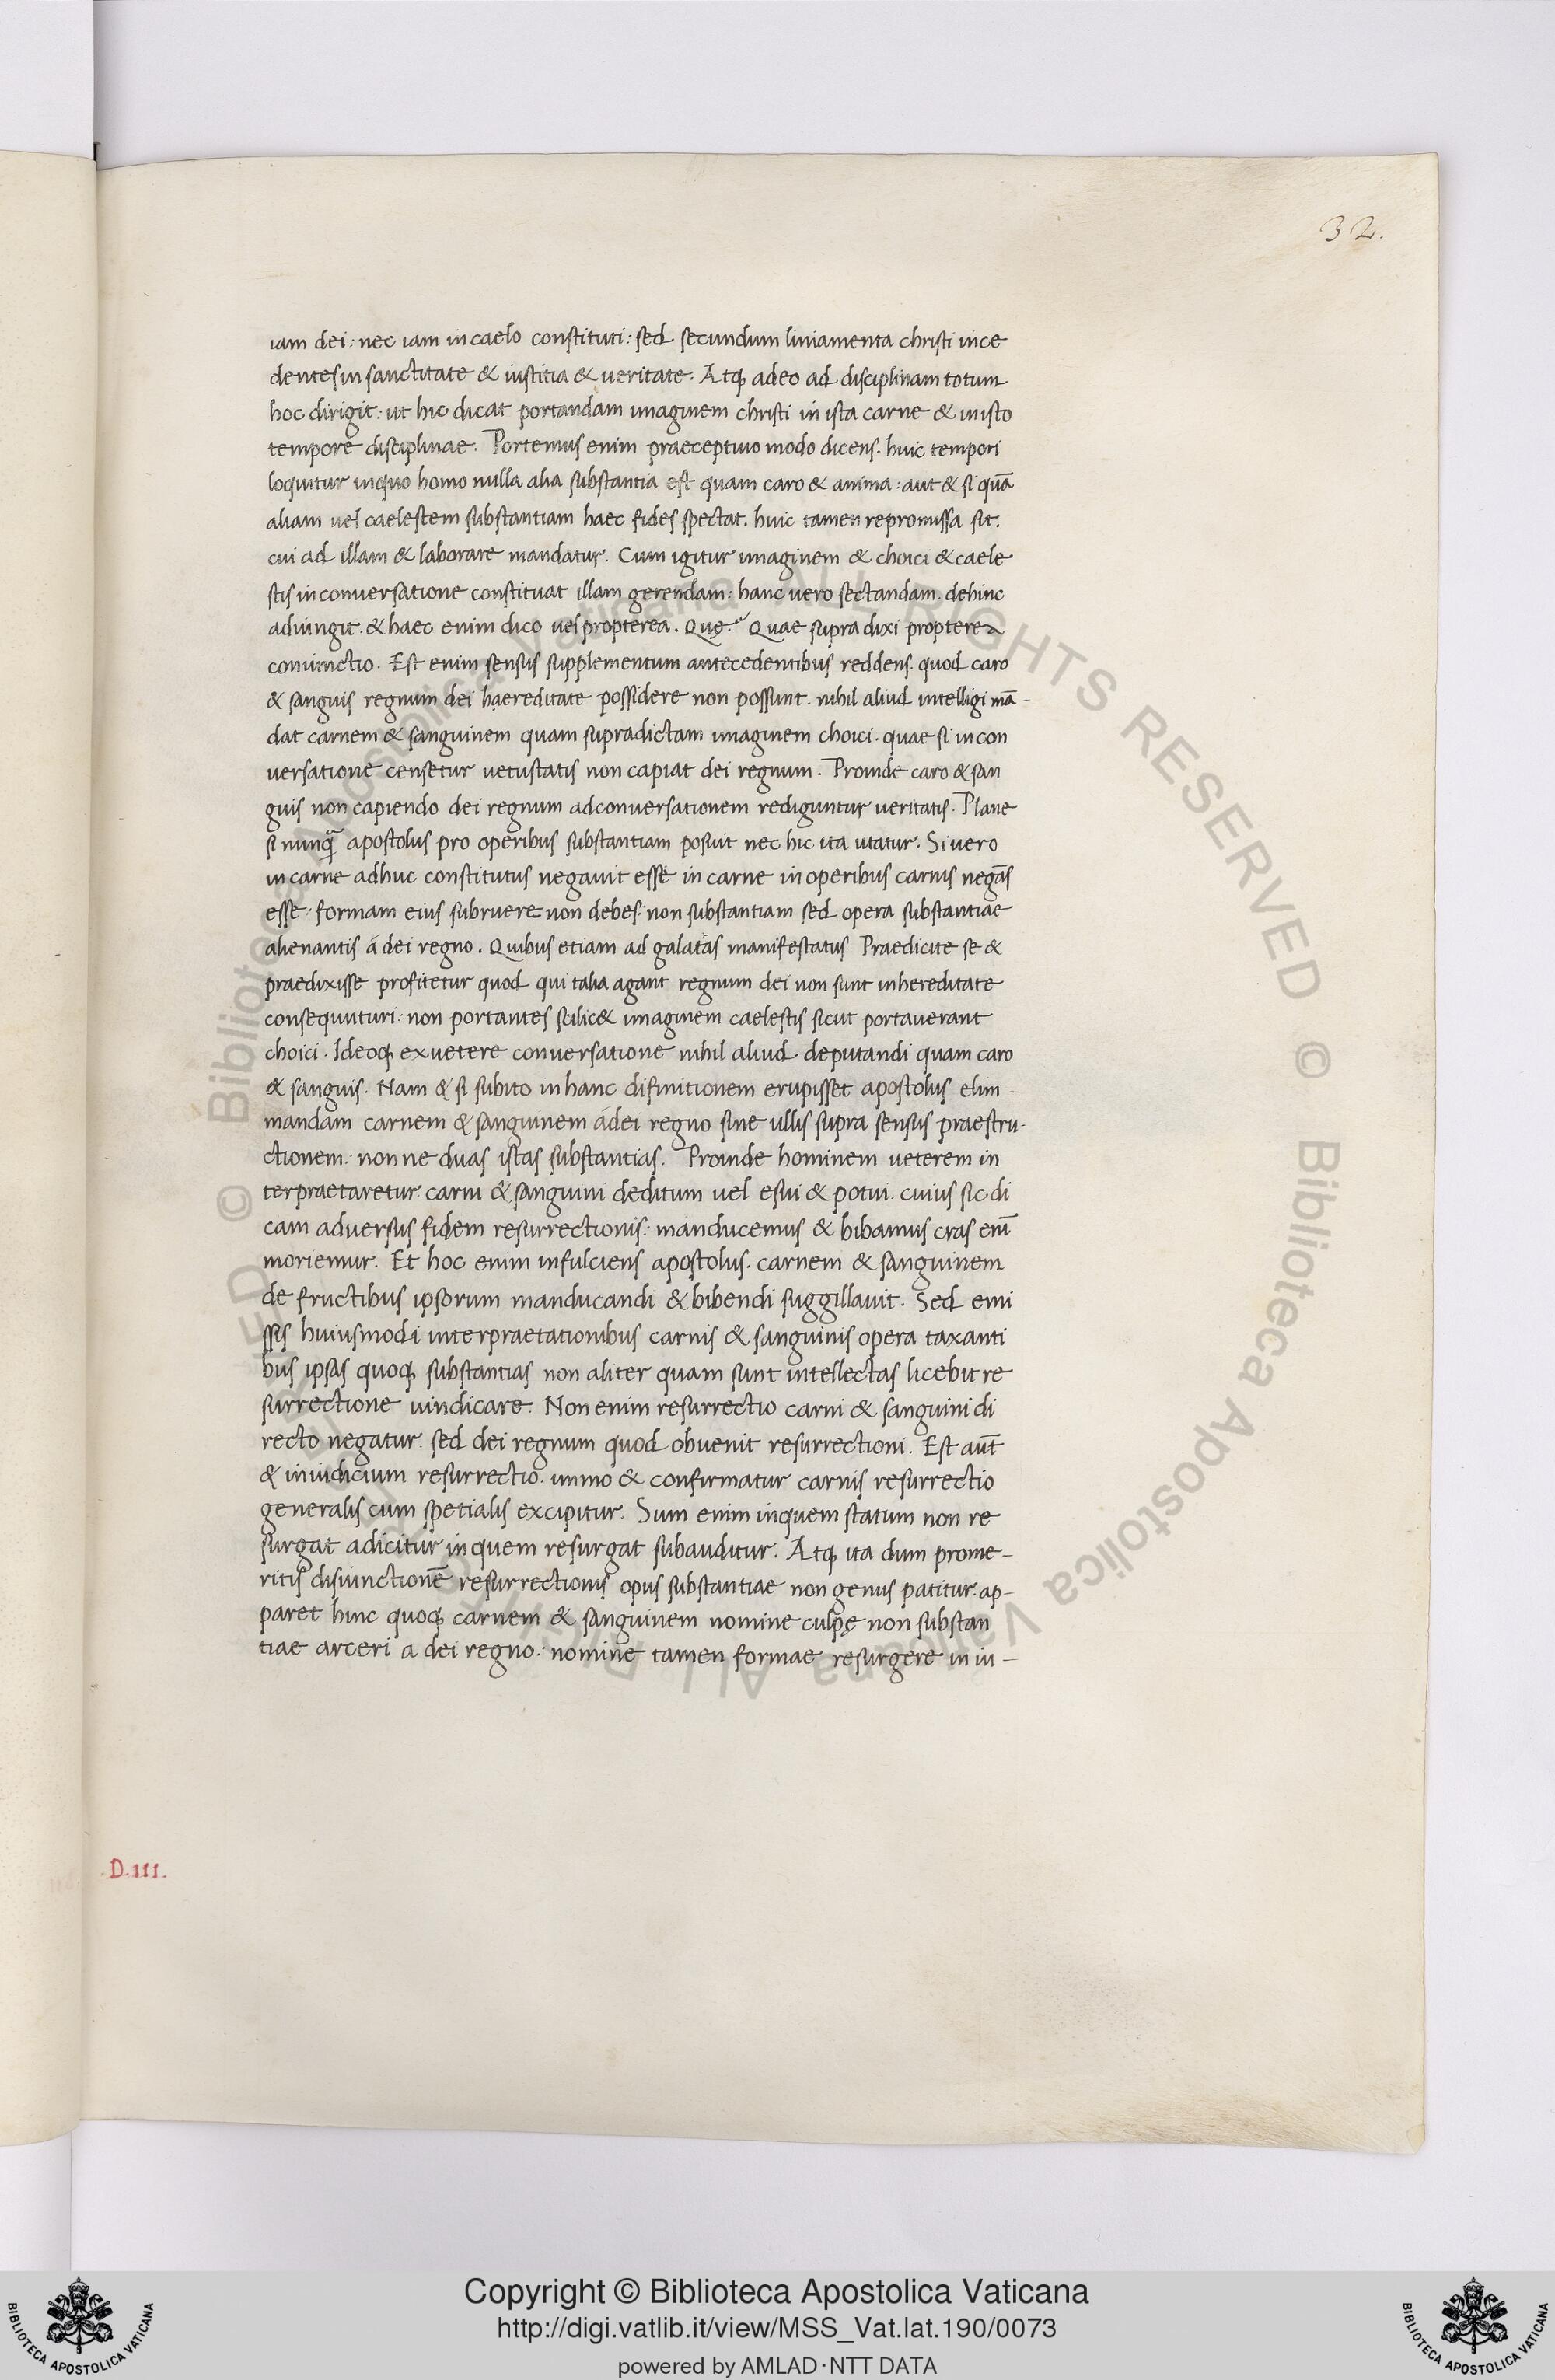 32.
iam dei: nec iam in caelo constituti: sed secundum liniamenta christi ince
dentes in sanctitate & iustitia & ueritate. Atq adeo ad disciplinam totum
hoc dirigit: ut hic dicat portandam imaginem christi in ista carne & in isto
tempore disciplinae. Portemus enim praeceptiuo modo dicens. huic tempori
loquitur inquo homo nulla alia substantia est quam caro & anima: aut & si quā
aliam uel caelestem substantiam haec fides spectat. huic tamen repromissa sit.
cui ad illam & laborare mandatur. Cum igitur imaginem & choici & caele
stis in conuersatione constituat illam gerendam: hanc uero sectandam. dehinc
adiungit. & haec enim dico uel propterea. Quę. Quae supra dixi propterea
coniunctio. Est enim sensus supplementum antecedentibus reddens. quod caro
& sanguis regnum dei haereditate possidere non possunt. nihil aliud intelligi mā-
dat carnem & sanguinem quam supradictam imaginem choici. quae si in con
uersatione censetur uetustatis non capiat dei regnum. Proinde caro & san
guis non capiendo dei regnum ad conuersationem rediguntur ueritatis. Plane
si nunq̃ apostolus pro operibus substantiam posuit nec hic ita utatur. Si uero
in carne adhuc constitutus negauit esse in carne in operibus carnis negās
esse: formam eius subruere non debes: non substantiam sed opera substantiae
alienantis á dei regno. Quibus etiam ad galatas manifestatus. Praedicite se &
praedixisse profitetur quod qui talia agant regnum dei non sunt in hereditate
consequuturi: non portantes scilic& imaginem caelestis sicut portauerant
choici. Ideoq ex uetere conuersatione nihil aliud deputandi quam caro
& sanguis. Nam & si subito in hanc difinitionem erupisset apostolus elim-
mandam carnem & sanguinem á dei regno sine ullis supra sensus praestru-
ctionem: nonne duas istas substantias. Proinde hominem ueterem in
terpraetaretur. carni & sanguini deditum uel esui & potui. cuius sic di
cam aduersus fidem resurrectionis: manducemus & bibamus cras enī
moriemur. Et hoc enim infulciens apostolus. carnem & sanguinem
de fructibus ipsorum manducandi & bibendi suggillauit. Sed emi
ssis huiusmodi interpraetationibus carnis & sanguinis opera taxanti
bus ipsas quoq substantias non aliter quam sunt intellectas licebit re
surrectione uindicare. Non enim resurrectio carni & sanguini di
recto negatur. sed dei regnum quod obuenit resurrectioni. Est aūt
& in iudicium resurrectio. immo & confirmatur carnis resurrectio
generalis cum spetialis excipitur. Sum enim inquem statum non re
surgat adicitur in quem resurgat subauditur. Atq ita dum prome-
ritis disiunctionē resurrectionis opus substantiae non genus patitur. ap-
paret hinc quoq carnem & sanguinem nomine culpę non substan
tiae arceri a dei regno: nomine tamen formae resurgere in iu-
.D.iii.
© Biblioteca Apostolica Vaticana ALL RIGHTS RESERVED © Biblioteca Apostolica Vaticana ALL RIGHTS RESERVED
Copyright © Biblioteca Apostolica Vaticana
http://digi.vatlib.it/view/MSS_Vat.lat.190/0073
powered by AMLAD·NTT DATA
BIBLIOTECA APOSTOLICA VATICANA
BIBLIOTECA APOSTOLICA VATICANA